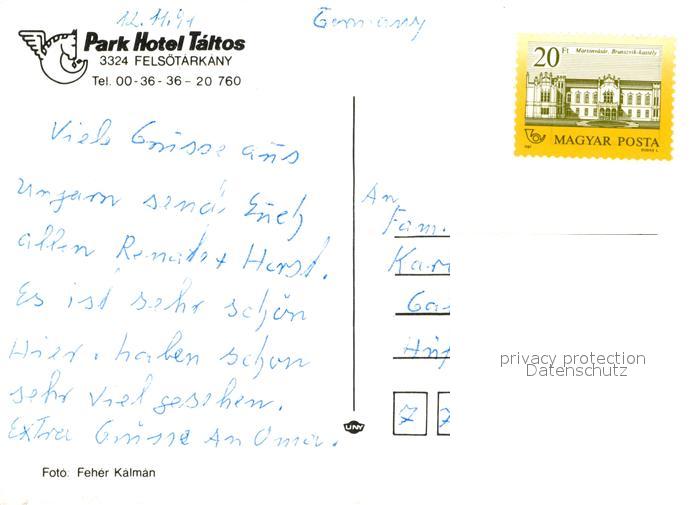 12.11.91 Germany
Park Hotel Táltos
3324 FELSŐTÁRKÁNY
Tel. 00-36-36-20 760
20 Ft
Martonvásár, Brunszvik-kastély
MAGYAR POSTA
Viele Grüsse aus
Ungarn send. Euch
allen Renate + Horst.
Es ist sehr schön
Hier. haben schon
sehr viel gesehen.
Extra Grüsse An Oma.
An
Fam.
Kar
Ga
7 7
privacy protection
Datenschutz
Fotó: Fehér Kálmán